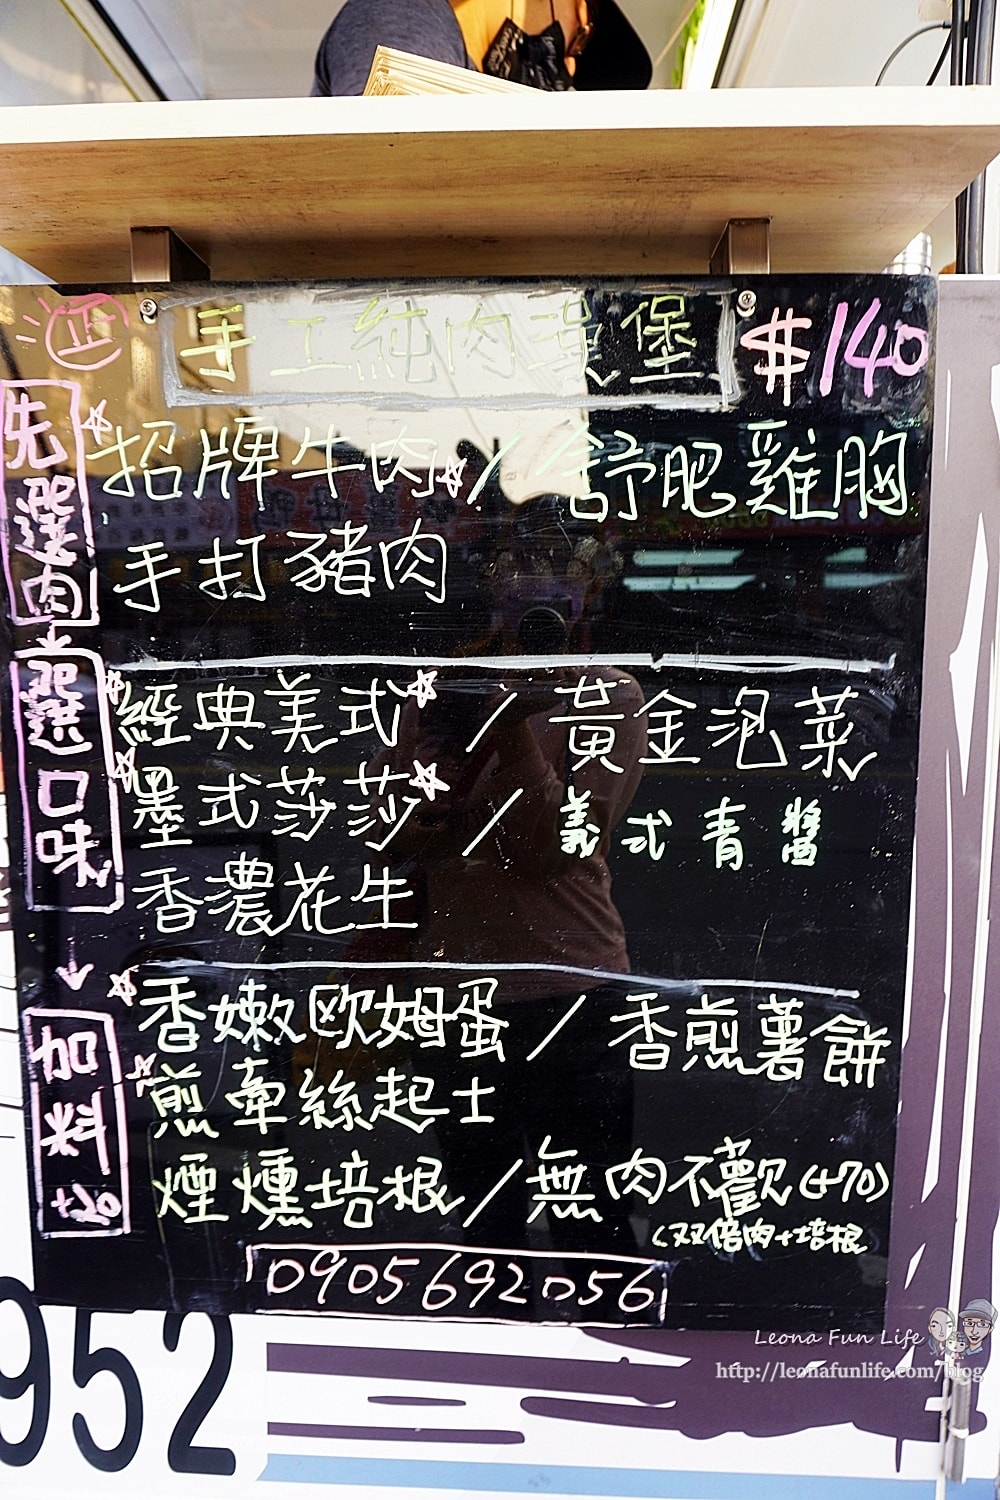 正 手工純肉漢堡 $140
先選肉
招牌牛肉 / 舒肥雞胸
手打豬肉
選口味
經典美式 / 黃金泡菜
墨式莎莎 / 義式青醬
香濃花生
加料 +20
香嫩歐姆蛋 / 香煎薯餅
煎牽絲起士
煙燻培根 / 無肉不歡 (+70)
(双倍肉+培根
0905692056
952
Leona Fun Life
http://leonafunlife.com/blog